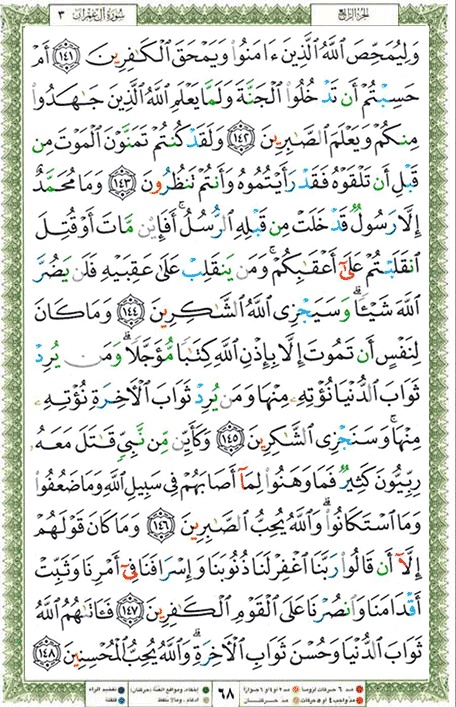 سُورَةُ آلِ عِمْرَان ٣
الجُزْءُ الرَّابِعُ
وَلِيُمَحِّصَ اللَّهُ الَّذِينَ ءَامَنُوا وَيَمْحَقَ الْكَافِرِينَ ﴿١٤١﴾ أَمْ
حَسِبْتُمْ أَن تَدْخُلُوا الْجَنَّةَ وَلَمَّا يَعْلَمِ اللَّهُ الَّذِينَ جَاهَدُوا
مِنكُمْ وَيَعْلَمَ الصَّابِرِينَ ﴿١٤٢﴾ وَلَقَدْ كُنتُمْ تَمَنَّوْنَ الْمَوْتَ مِن
قَبْلِ أَن تَلْقَوْهُ فَقَدْ رَأَيْتُمُوهُ وَأَنتُمْ تَنظُرُونَ ﴿١٤٣﴾ وَمَا مُحَمَّدٌ
إِلَّا رَسُولٌ قَدْ خَلَتْ مِن قَبْلِهِ الرُّسُلُ ۚ أَفَإِيْن مَّاتَ أَوْ قُتِلَ
انقَلَبْتُمْ عَلَىٰ أَعْقَابِكُمْ ۚ وَمَن يَنقَلِبْ عَلَىٰ عَقِبَيْهِ فَلَن يَضُرَّ
اللَّهَ شَيْئًا ۗ وَسَيَجْزِي اللَّهُ الشَّاكِرِينَ ﴿١٤٤﴾ وَمَا كَانَ
لِنَفْسٍ أَن تَمُوتَ إِلَّا بِإِذْنِ اللَّهِ كِتَابًا مُّؤَجَّلًا ۗ وَمَن يُرِدْ
ثَوَابَ الدُّنْيَا نُؤْتِهِ مِنْهَا وَمَن يُرِدْ ثَوَابَ الْآخِرَةِ نُؤْتِهِ
مِنْهَا ۚ وَسَنَجْزِي الشَّاكِرِينَ ﴿١٤٥﴾ وَكَأَيِّن مِّن نَّبِيٍّ قَاتَلَ مَعَهُ
رِبِّيُّونَ كَثِيرٌ فَمَا وَهَنُوا لِمَا أَصَابَهُمْ فِي سَبِيلِ اللَّهِ وَمَا ضَعُفُوا
وَمَا اسْتَكَانُوا ۗ وَاللَّهُ يُحِبُّ الصَّابِرِينَ ﴿١٤٦﴾ وَمَا كَانَ قَوْلَهُمْ
إِلَّا أَن قَالُوا رَبَّنَا اغْفِرْ لَنَا ذُنُوبَنَا وَإِسْرَافَنَا فِي أَمْرِنَا وَثَبِّتْ
أَقْدَامَنَا وَانصُرْنَا عَلَى الْقَوْمِ الْكَافِرِينَ ﴿١٤٧﴾ فَآتَاهُمُ اللَّهُ
ثَوَابَ الدُّنْيَا وَحُسْنَ ثَوَابِ الْآخِرَةِ ۗ وَاللَّهُ يُحِبُّ الْمُحْسِنِينَ ﴿١٤٨﴾
٦٨